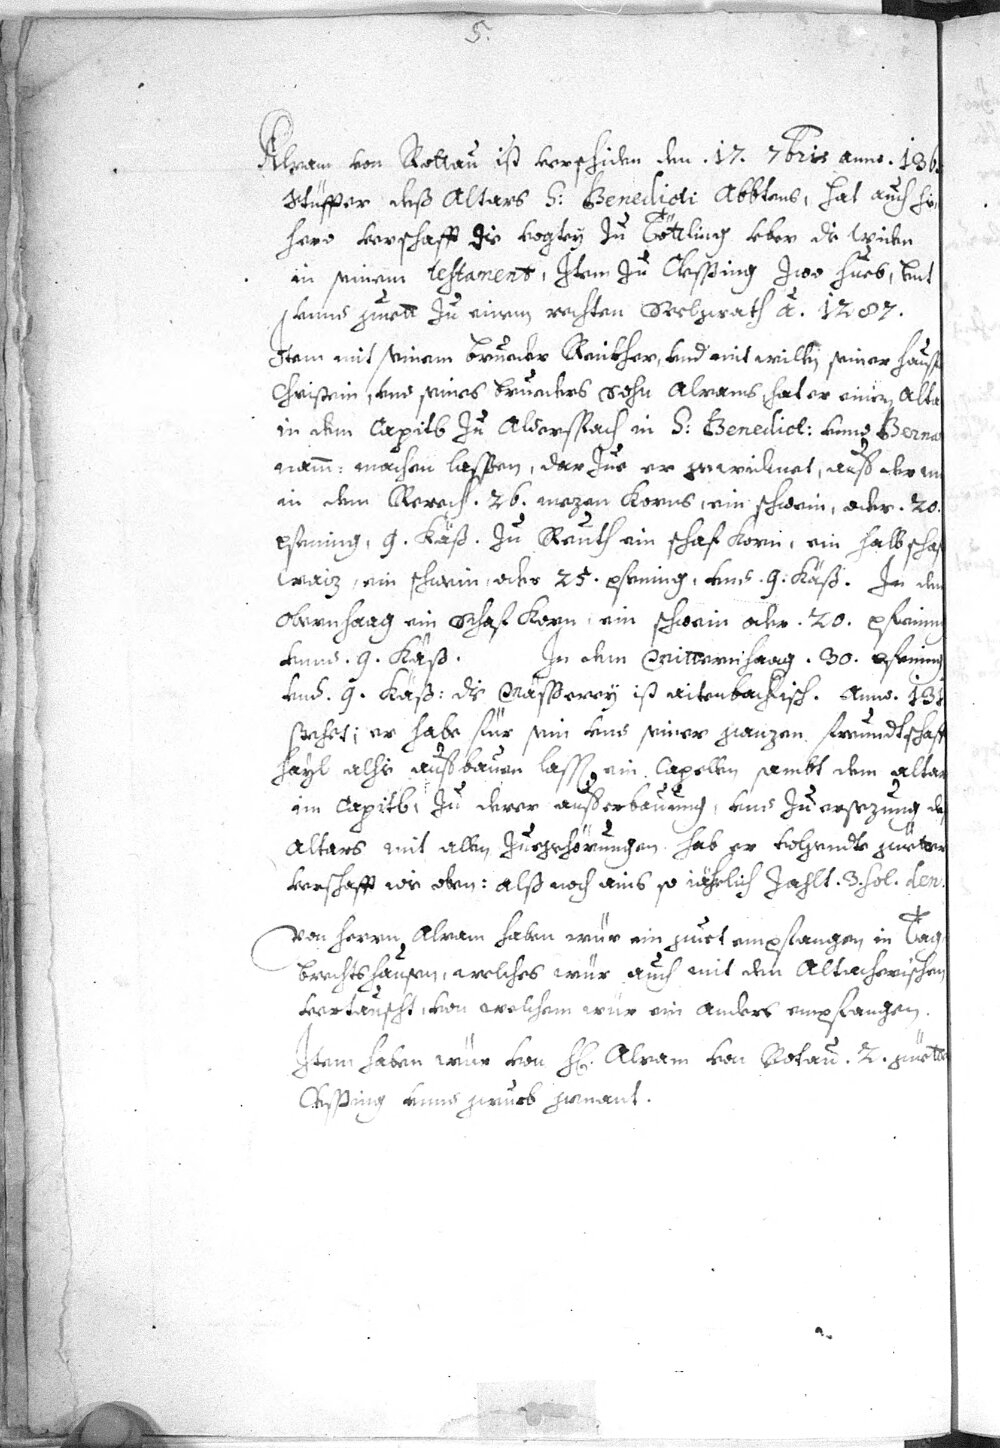 5.
Alram von Rottau ist verschiden den .17. 7bris anno .136
Stüffter deß Altars S: Benedicti Abbtens, hat auch hie
hero verschafft die vogtey zu Töttling vber die widen
in seinem testament, Item zu Cleßing zwo hueb, vnt
vnnd guett zu einem rechten Seelgerath A. 1287.
Item mit seinem brueder Reickher, vnd mit willen seiner hauß
Christein, vnd seines brueders Sohn Alrams, hat er einen Alta
in dem Capitl zu Alderspach in S: Benedict: vnnd Berna
nam: machen lassen, dar zue er gewidmet, auß der
in dem Rerech .26. mezen Korns, ein schwein, oder .20.
pfening, 9. Käß. Zu Reuth ein schaf Korn, ein halb schaf
waiz, ein schwein, oder 25. pfening, vnd .9. Käß. In dem
obernhaag ein schaf Korn, ein schwein oder .20. pfening
vnnd .9. Käß. In dem Mitternhaag .30. pfening
vnd .9. Käß: die Mässerey ist aitenbachisch. Anno .131
stehet; er habe für sein vnd seiner ganzen freundtschafft
hayl alhie aufbauen lassen ein Capellen sambt dem altar
im Capitl, zu derer aufferbauung, vnd zu ersezung deß
Altars mit allen zuegehörungen hab er volgendte güetter
verschafft wie oben: alß noch ains so iährlich zahlt .3. sol. den.
Von herrn Alram haben wür ein guet empfangen in Tag
brechtshausen, welches wür auch mit den Altacherischen
vertauscht, von welchem wür ein anders empfangen.
Item haben wür von H. Alram von Rotau .2. güetter
Cleßing vnnd grueb genant.